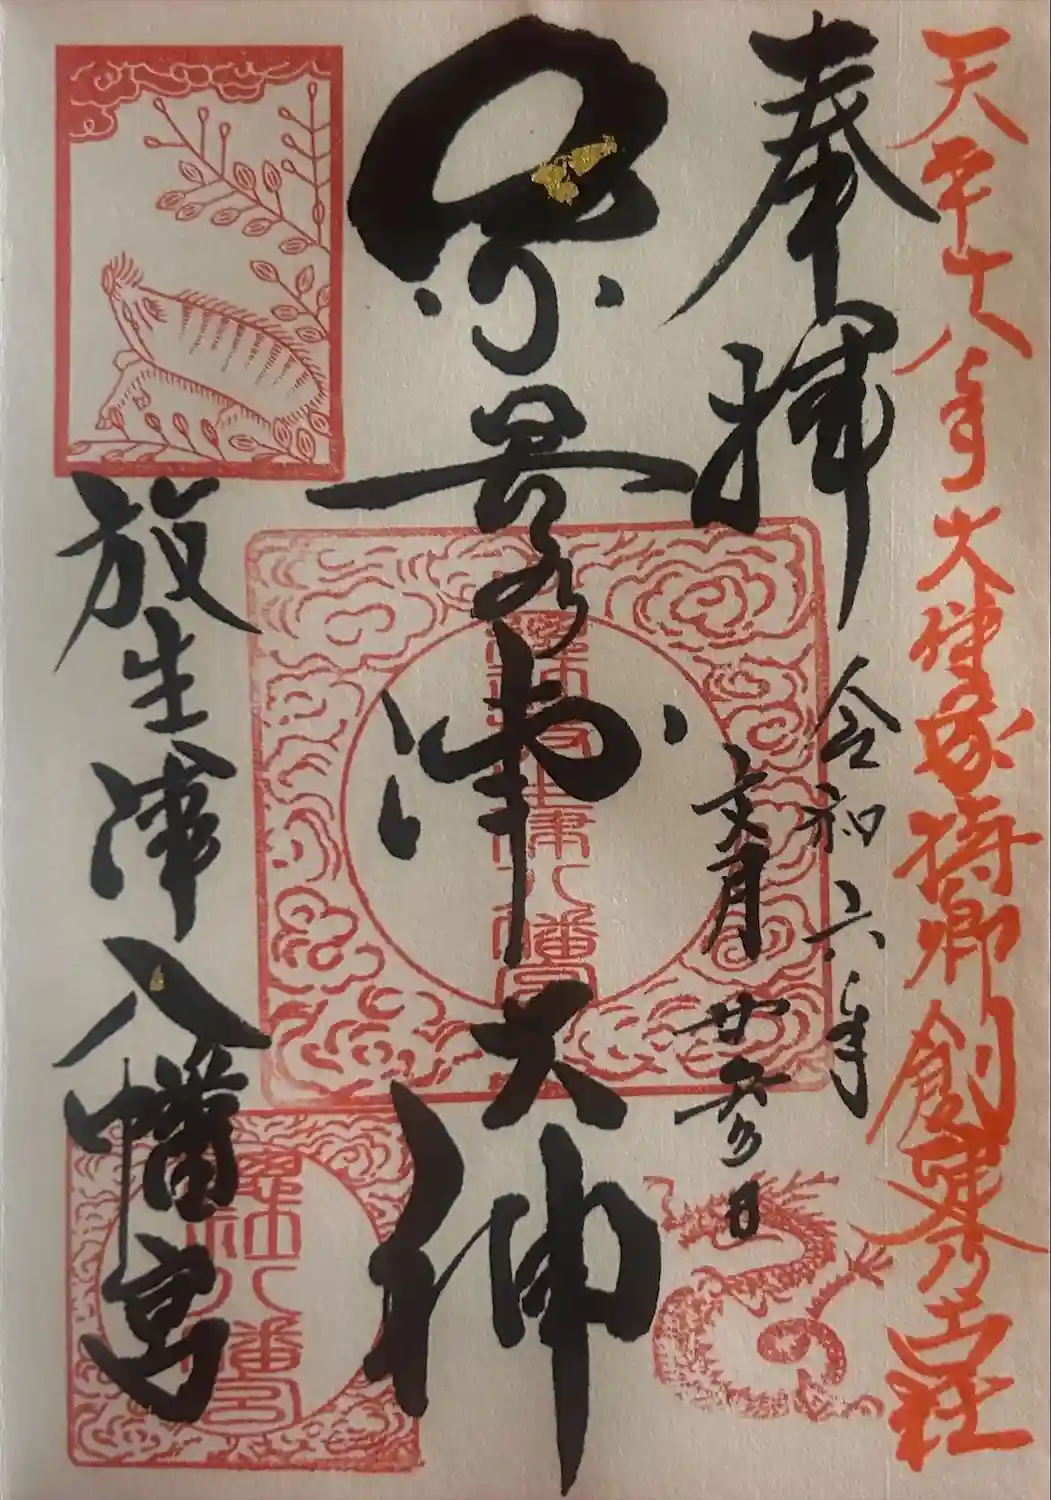 天平十八年大伴家持卿創建奉乃古社
奉拝
令和六年
文月廿参日
景津大神
放生津八幡宮